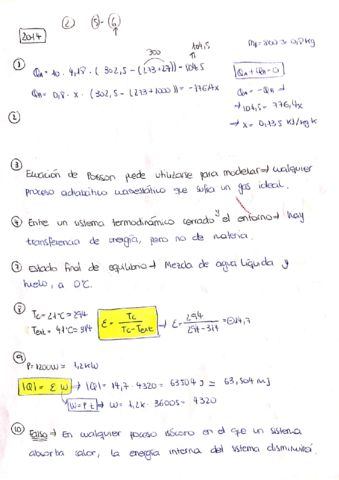 ② ⑤-⑥
2014
① Qa = 10 · 4,18 · (302,5 - (273+27)) = 104,5
300
104,5
Qm = 0,8 · x · (302,5 - (273+1000)) = -776,4x
Qa + Qm = 0
Qa = -Qm →
→ 104,5 = 776,4x
→ x = 0,135 KJ/kg K
②
③ Ecuación de Poisson puede utilizarse para modelar → cualquier
proceso adiabático cuasiestático que sufra un gas ideal.
④ Entre un sistema termodinámico cerrado y el entorno → hay
transferencia de energía, pero no de materia.
⑦ Estado final de equilibrio → Mezcla de agua líquida y
hielo, a 0ºC.
⑧ Tc = 21ºC = 294
Text = 41ºC = 314
ε = Tc / Tc - Text → ε = 294 / 294 - 314 = ⊖14,7
⑨ P = 1200W = 1,2kW
|Q| = ε W → |Q| = 14,7 · 4320 = 63504 J ≅ 63,504 MJ
W = P t → W = 1,2k · 3600s = 4320
⑩ Falso → En cualquier proceso isócoro en el que un sistema
absorba calor, la energía interna del sistema disminuirá.